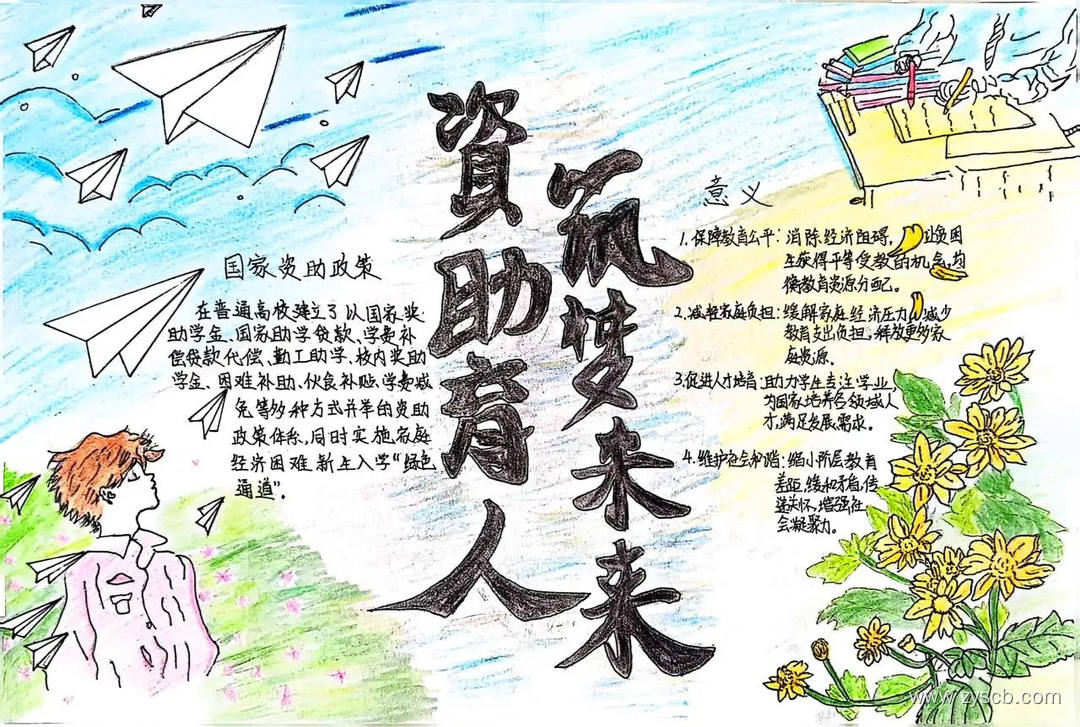 資助育人
筑梦未来
国家资助政策
在普通高校建立了以国家奖·
助学金、国家助学贷款、学费补
偿贷款代偿、勤工助学、校内奖助
学金、困难补助、伙食补贴、学费减
免等多种方式并举的资助
政策体系,同时实施家庭
经济困难新生入学“绿色
通道”。
意义
1.保障教育公平:消除经济阻碍,让贫困
生获得平等受教的机会,均
衡教育资源分配。
2.减轻家庭负担:缓解家庭经济压力,减少
教育支出负担,释放更多家
庭资源。
3.促进人才培育:助力学生专注学业,
为国家培养各领域人
才,满足发展需求。
4.维护社会和谐:缩小阶层教育
差距,缓和矛盾,传
递关怀,增强社
会凝聚力。
www.zyscb.com